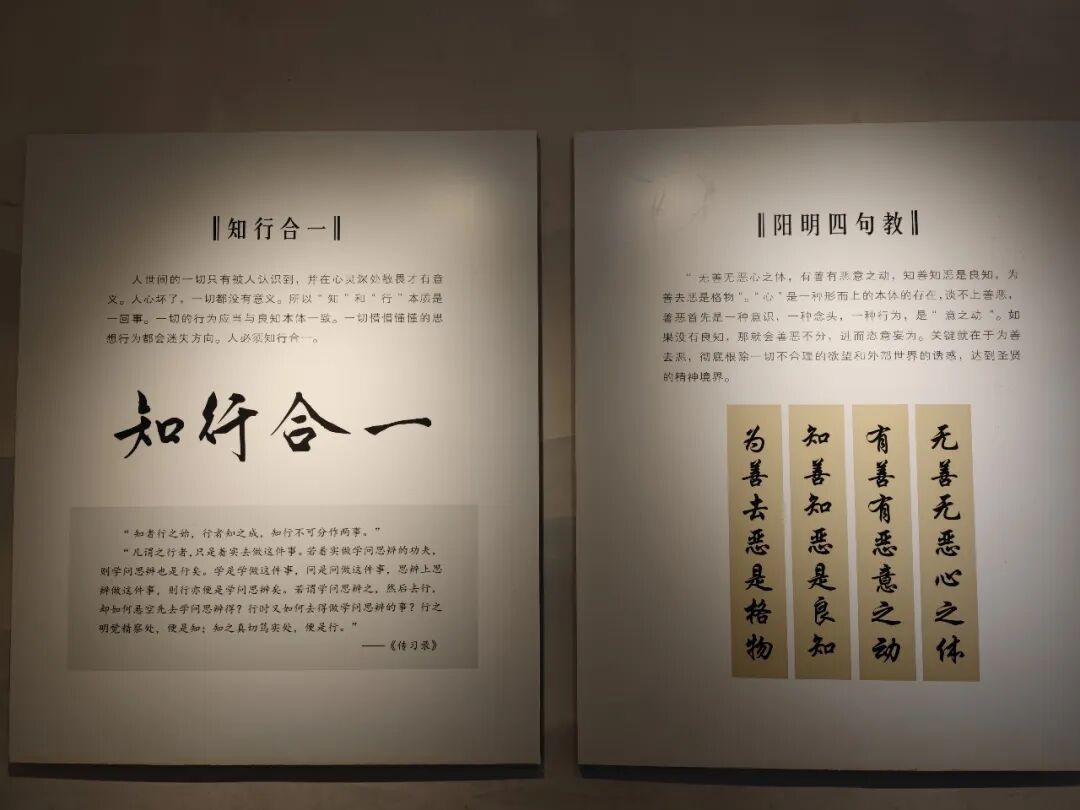 知行合一
人世间的一切只有被人认识到，并在心灵深处敬畏才有意
义。人心坏了，一切都没有意义。所以“知”和“行”本质是
一回事。一切的行为应当与良知本体一致。一切懵懵懂懂的思
想行为都会迷失方向。人必须知行合一。
知行合一
“知者行之始，行者知之成，知行不可分作两事。”
“凡谓之行者，只是着实去做这件事。若着实做学问思辨的功夫，
则学问思辨也是行矣。学是学做这件事，问是问做这件事，思辨上思
辨做这件事，则行亦便是学问思辨矣。若谓学问思辨之，然后去行，
却如何悬空先去学问思辨得？行时又如何去得做学问思辨的事？行之
明觉精察处，便是知；知之真切笃实处，便是行。”
——《传习录》
阳明四句教
“无善无恶心之体，有善有恶意之动，知善知恶是良知，为
善去恶是格物”。“心”是一种形而上的本体的存在，谈不上善恶，
善恶首先是一种意识，一种念头，一种行为，是“意之动”。如
果没有良知，那就会善恶不分，进而恣意妄为。关键就在于为善
去恶，彻底根除一切不合理的欲望和外部世界的诱惑，达到圣贤
的精神境界。
无善无恶心之体
有善有恶意之动
知善知恶是良知
为善去恶是格物